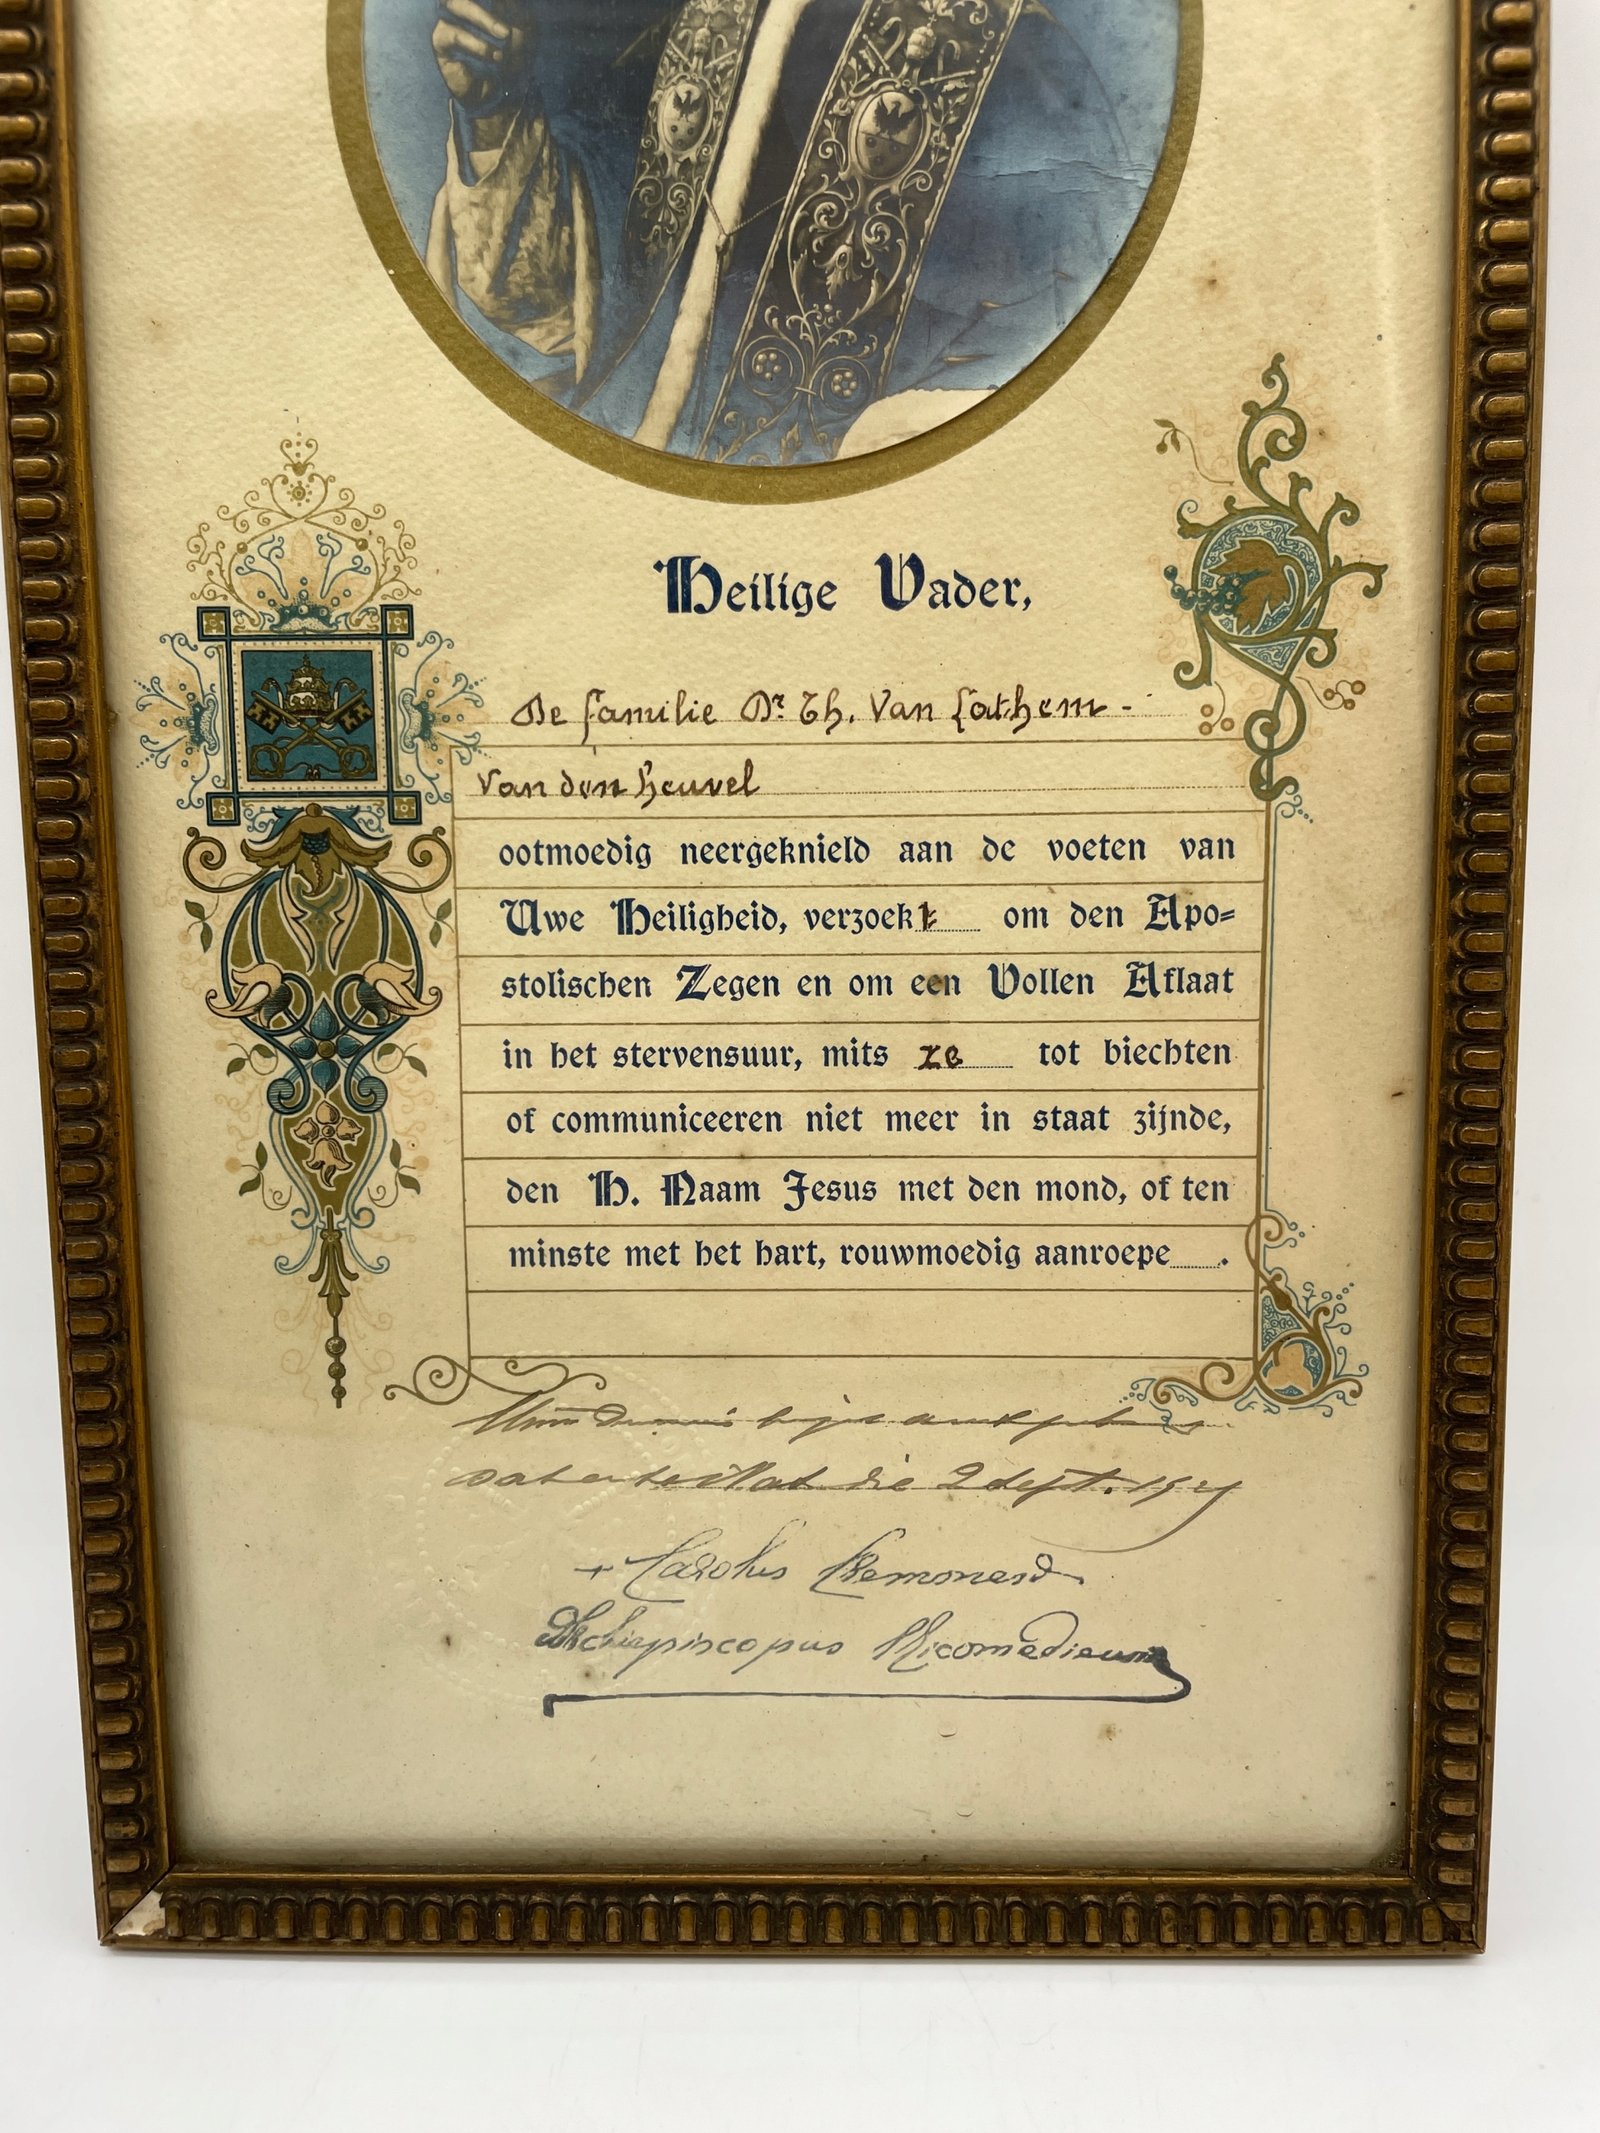 Heilige Vader,
De familie Dr. Th. Van Lathem -
Van den heuvel
ootmoedig neergeknield aan de voeten van
Uwe Heiligheid, verzoekt om den Apo=
stolischen Zegen en om een Vollen Aflaat
in het stervensuur, mits ze tot biechten
of communiceeren niet meer in staat zijnde,
den H. Naam Jesus met den mond, of ten
minste met het hart, rouwmoedig aanroepe .
die 2 Sept.
+ Carolus
Archiepiscopus Nicomediensis